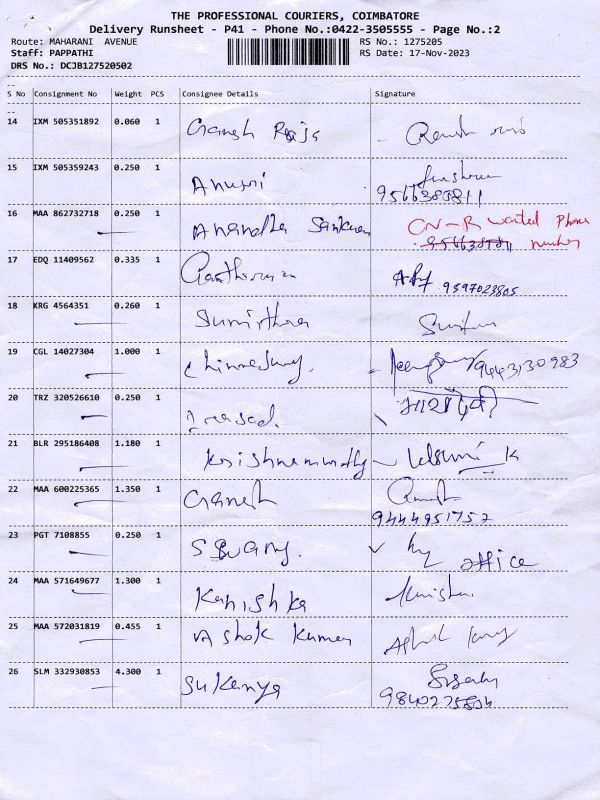 THE PROFESSIONAL COURIERS, COIMBATORE
Delivery Runsheet - P41 - Phone No.:0422-3505555 - Page No.:2
Route: MAHARANI AVENUE RS No.: 1275205
Staff: PAPPATHI RS Date: 17-Nov-2023
DRS No.: DCJB127520502
S No Consignment No Weight PCS Consignee Details Signature
14 IXM 505351892 0.060 1 Ganesh Raja
15 IXM 505359243 0.250 1 Anusri
16 MAA 862732718 0.250 1 Anandha Sankaran CN-R wanted Phone
number
17 EDQ 11409562 0.335 1 9597023805
18 KRG 4564351 0.260 1
19 CGL 14027304 1.000 1 Chinnadurai 9443130983
20 TRZ 320526610 0.250 1 Prasad
21 BLR 295186408 1.180 1 Krishnamurthy
22 MAA 600225365 1.350 1 Ganesh
9444951757
23 PGT 7108855 0.250 1 office
24 MAA 571649677 1.300 1 Kanishka
25 MAA 572031819 0.455 1 Ashok Kumar
26 SLM 332930853 4.300 1 Sukanya